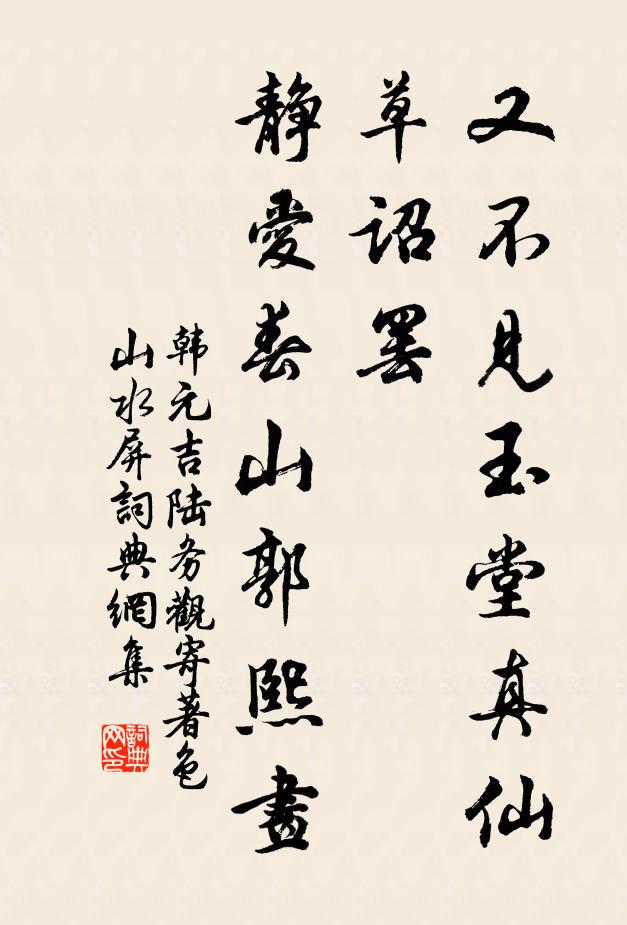 又不見玉堂真仙
草詔罢
靜愛春山郭熙畫
韩元吉陆务觀寄著色
山水屏詞典網集
詞典网印